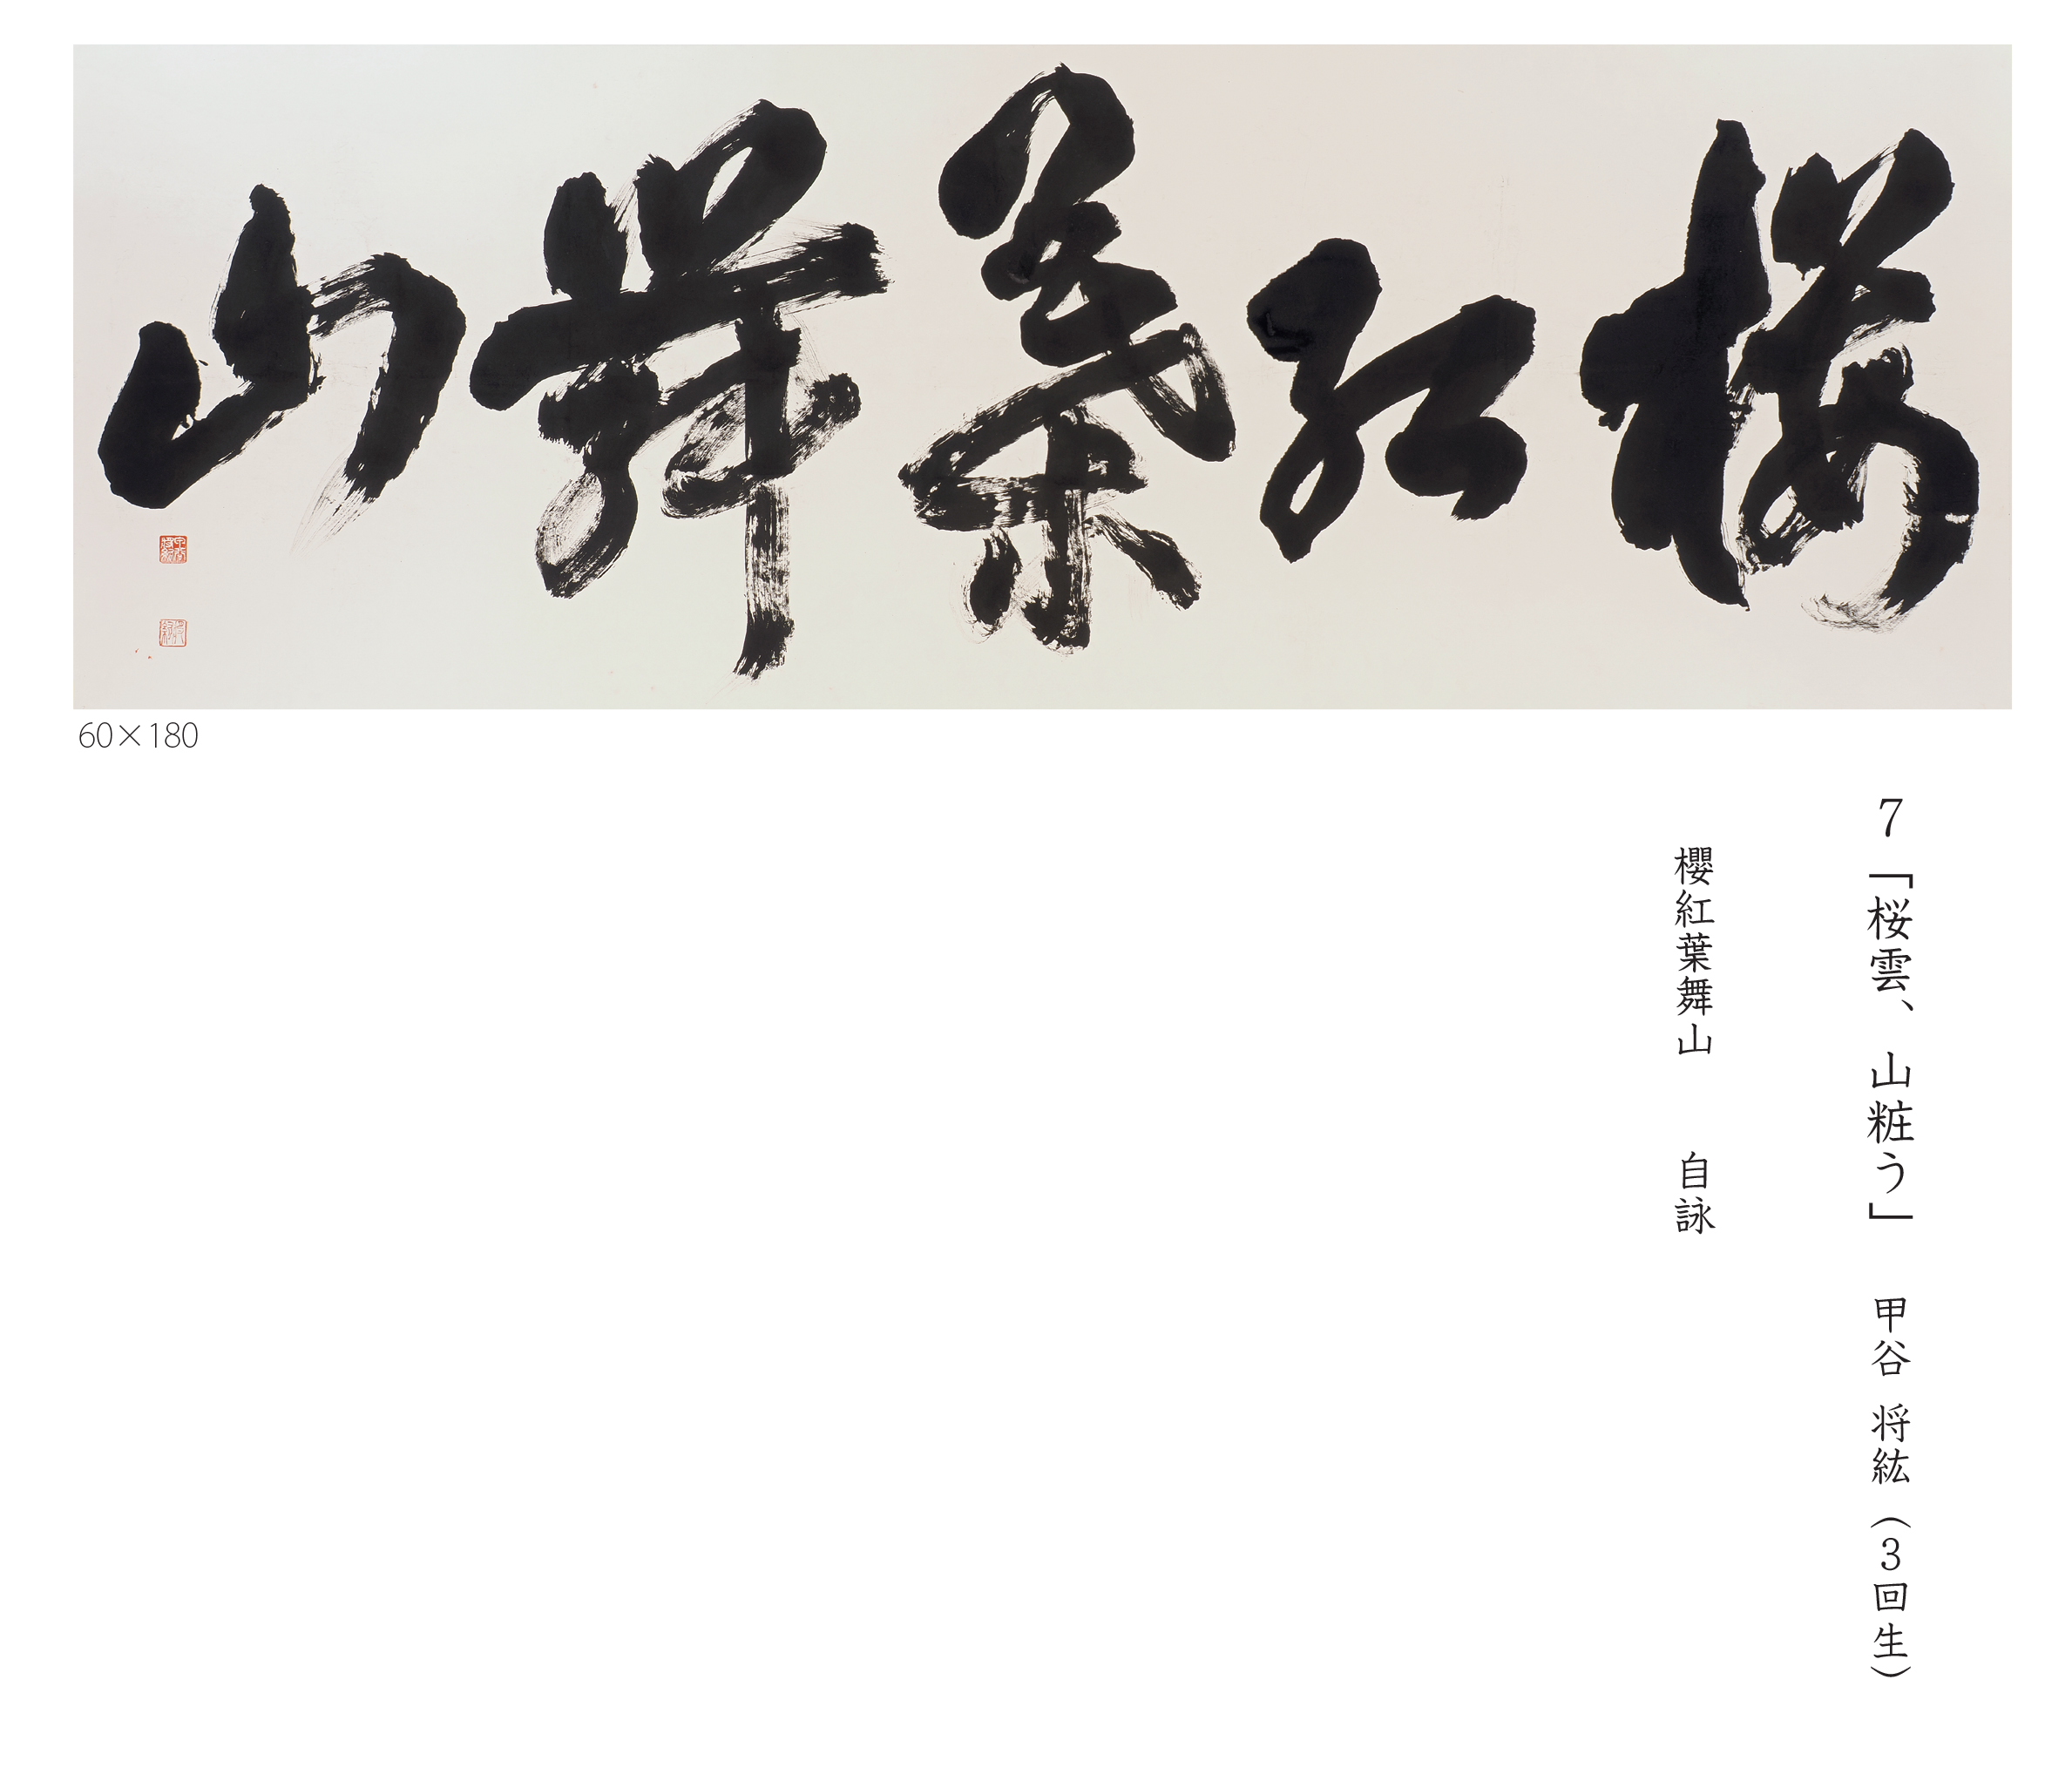 櫻紅葉舞山
60×180
7「桜雲、山粧う」 甲谷 将紘（3回生）
櫻紅葉舞山 自詠